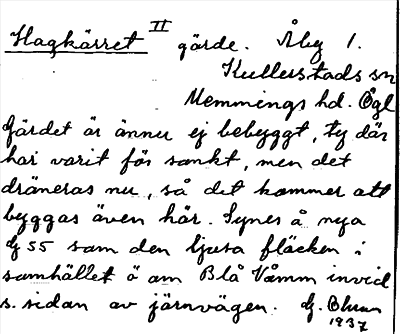 Hagkärret II gärde. Åby 1.
Kullerstads sn
Memmings hd. Ögl
Gärdet är ännu ej bebyggt, ty där
har varit för sankt, men det
dräneras nu, så det kommer att
byggas även här. Synes å nya
G 55 som den ljusa fläcken i
samhället ö om Blå Våmm invid
s. sidan av järnvägen. G.
1937